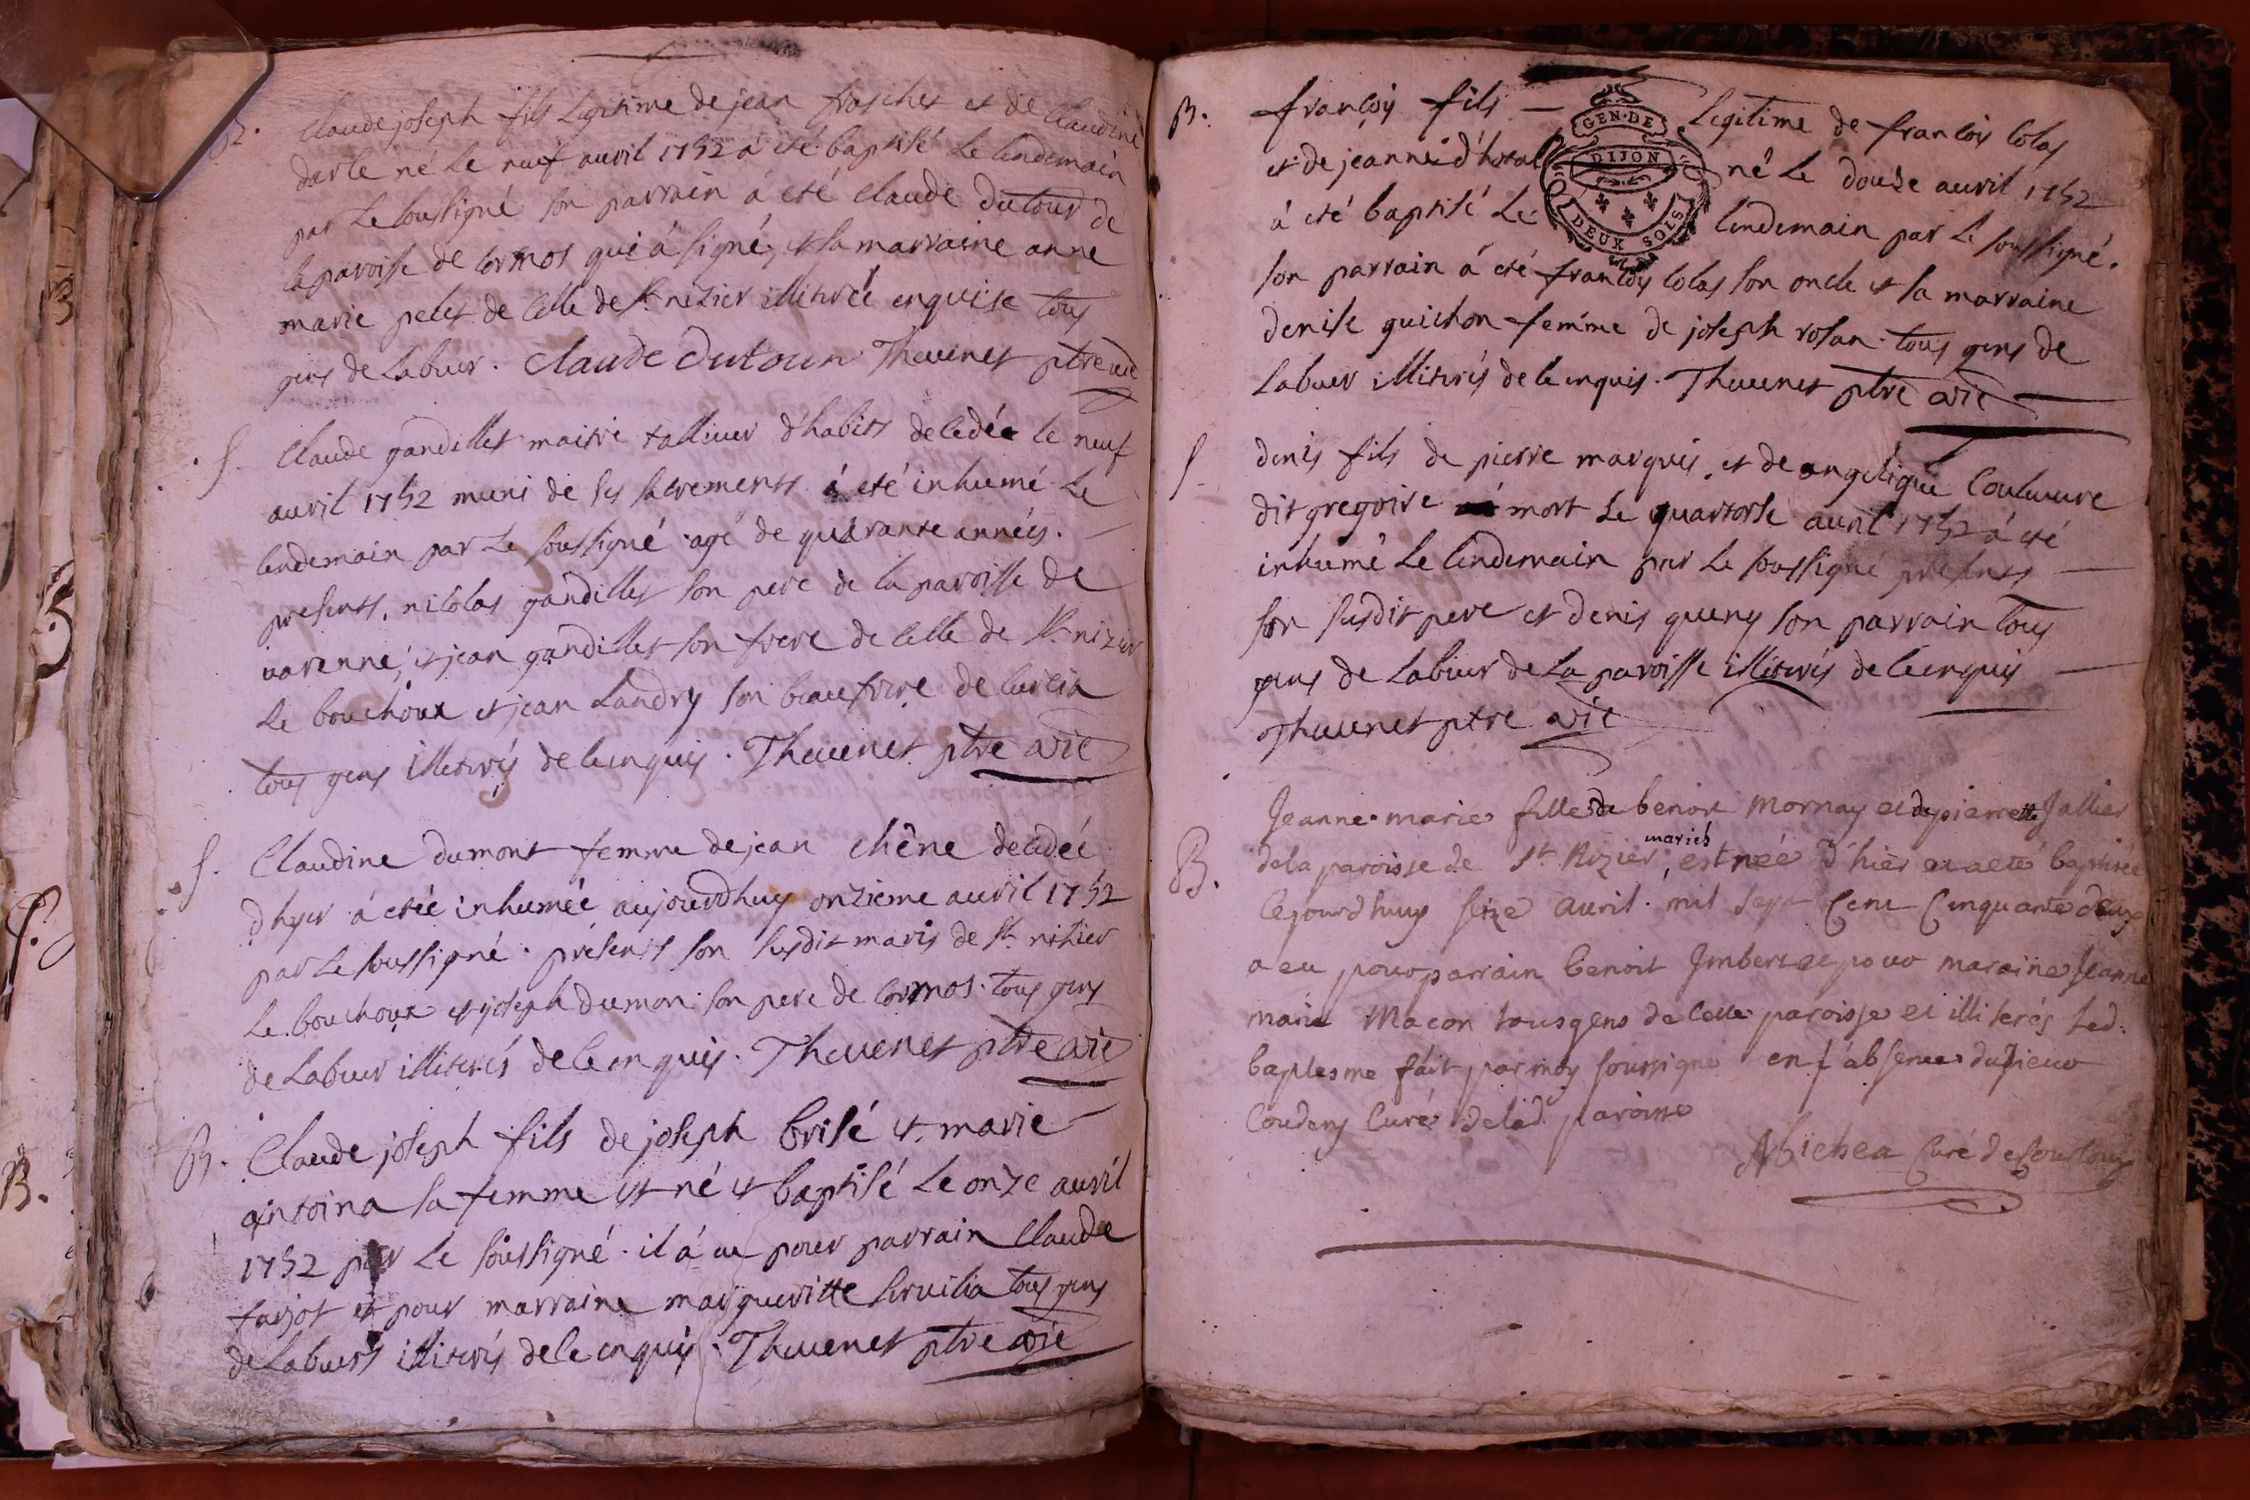 B. Claude joseph fils Legitime de jean frasches et de Claudine
darle né Le neuf auvril 1752 á eté baptisé Le lendemain
par Le soussigné son parrain á eté Claude Dutour de
la paroisse de Cormos qui á signé, et sa marraine anne
marie pelet de Celle de St. nizier illiterée enquise tous
gens de Labeur. Claude Dutour Thevenet ptre vic
S. Claude gandillet maitre tallieur d'habits decedée le neuf
auvril 1752 muni de ses sacrements á eté inhumé Le
lendemain par Le soussigné agé de quarante années.
presents, nicolas gandillet son pere de la paroisse de
varenne, et jean gandillet son frere de Celle de St. nizier
Le bouchoux et jean Landry son beaufrere de Curcia
tous gens illiterés de ce enquis. Thevenet ptre vic
S. Claudine dumont femme de jean Chêne decedée
d'hyer á etée inhumée aujourdhuy onzieme auvril 1752
par Le soussigné. présents son susdit maris de St. nizier
Le bouchoux et joseph dumon son pere de Cormos. tous gens
de Labeur illiterés de ce enquis. Thevenet ptre vic
B. Claude joseph fils de joseph brisé et marie
antoina sa femme est né et baptisé Le onze auvril
1752 par Le soussigné. il á eu pour parrain Claude
farjot et pour marraine margueritte servilia tous gens
de Labeurs illiterés de ce enquis. Thevenet ptre vic
B. françois fils — Legitime de françois Colas
et de jeanne d'hotal né Le douze auvril 1752
á eté baptisé Le lendemain par Le soussigné.
GEN·DE
DIJON
DEUX SOLS
son parrain á eté françois Colas son oncle et sa marraine
denise guichon femme de joseph rosan. tous gens de
Labeur illiterés de ce enquis. Thevenet ptre vic
S. denis fils de pierre marquis, et de angelique Couluvre
dit gregoire mort Le quartorse auvril 1752 á eté
inhumé Le lendemain par Le soussigné presents
son susdit pere et denis queny son parrain tous
gens de Labeur de La paroisse illiterés de ce enquis
Thevenet ptre vic
Jeanne marie fille de benoit Mornay et de pierrette Jallier
mariés
B. de la paroisse de St. Nizier, est née d'hier et a eté baptisée
Cejourdhuy seize auvril mil sept Cent Cinquante deux
a eu pour parrain benoit Jmbert et pour maraine Jeanne
marie Macon tous gens de Cette paroisse et illiterés led.
baptesme fait par moy soussigné en l'absence du sieur
Coudery Curé de lad. paroisse
Michea Curé de